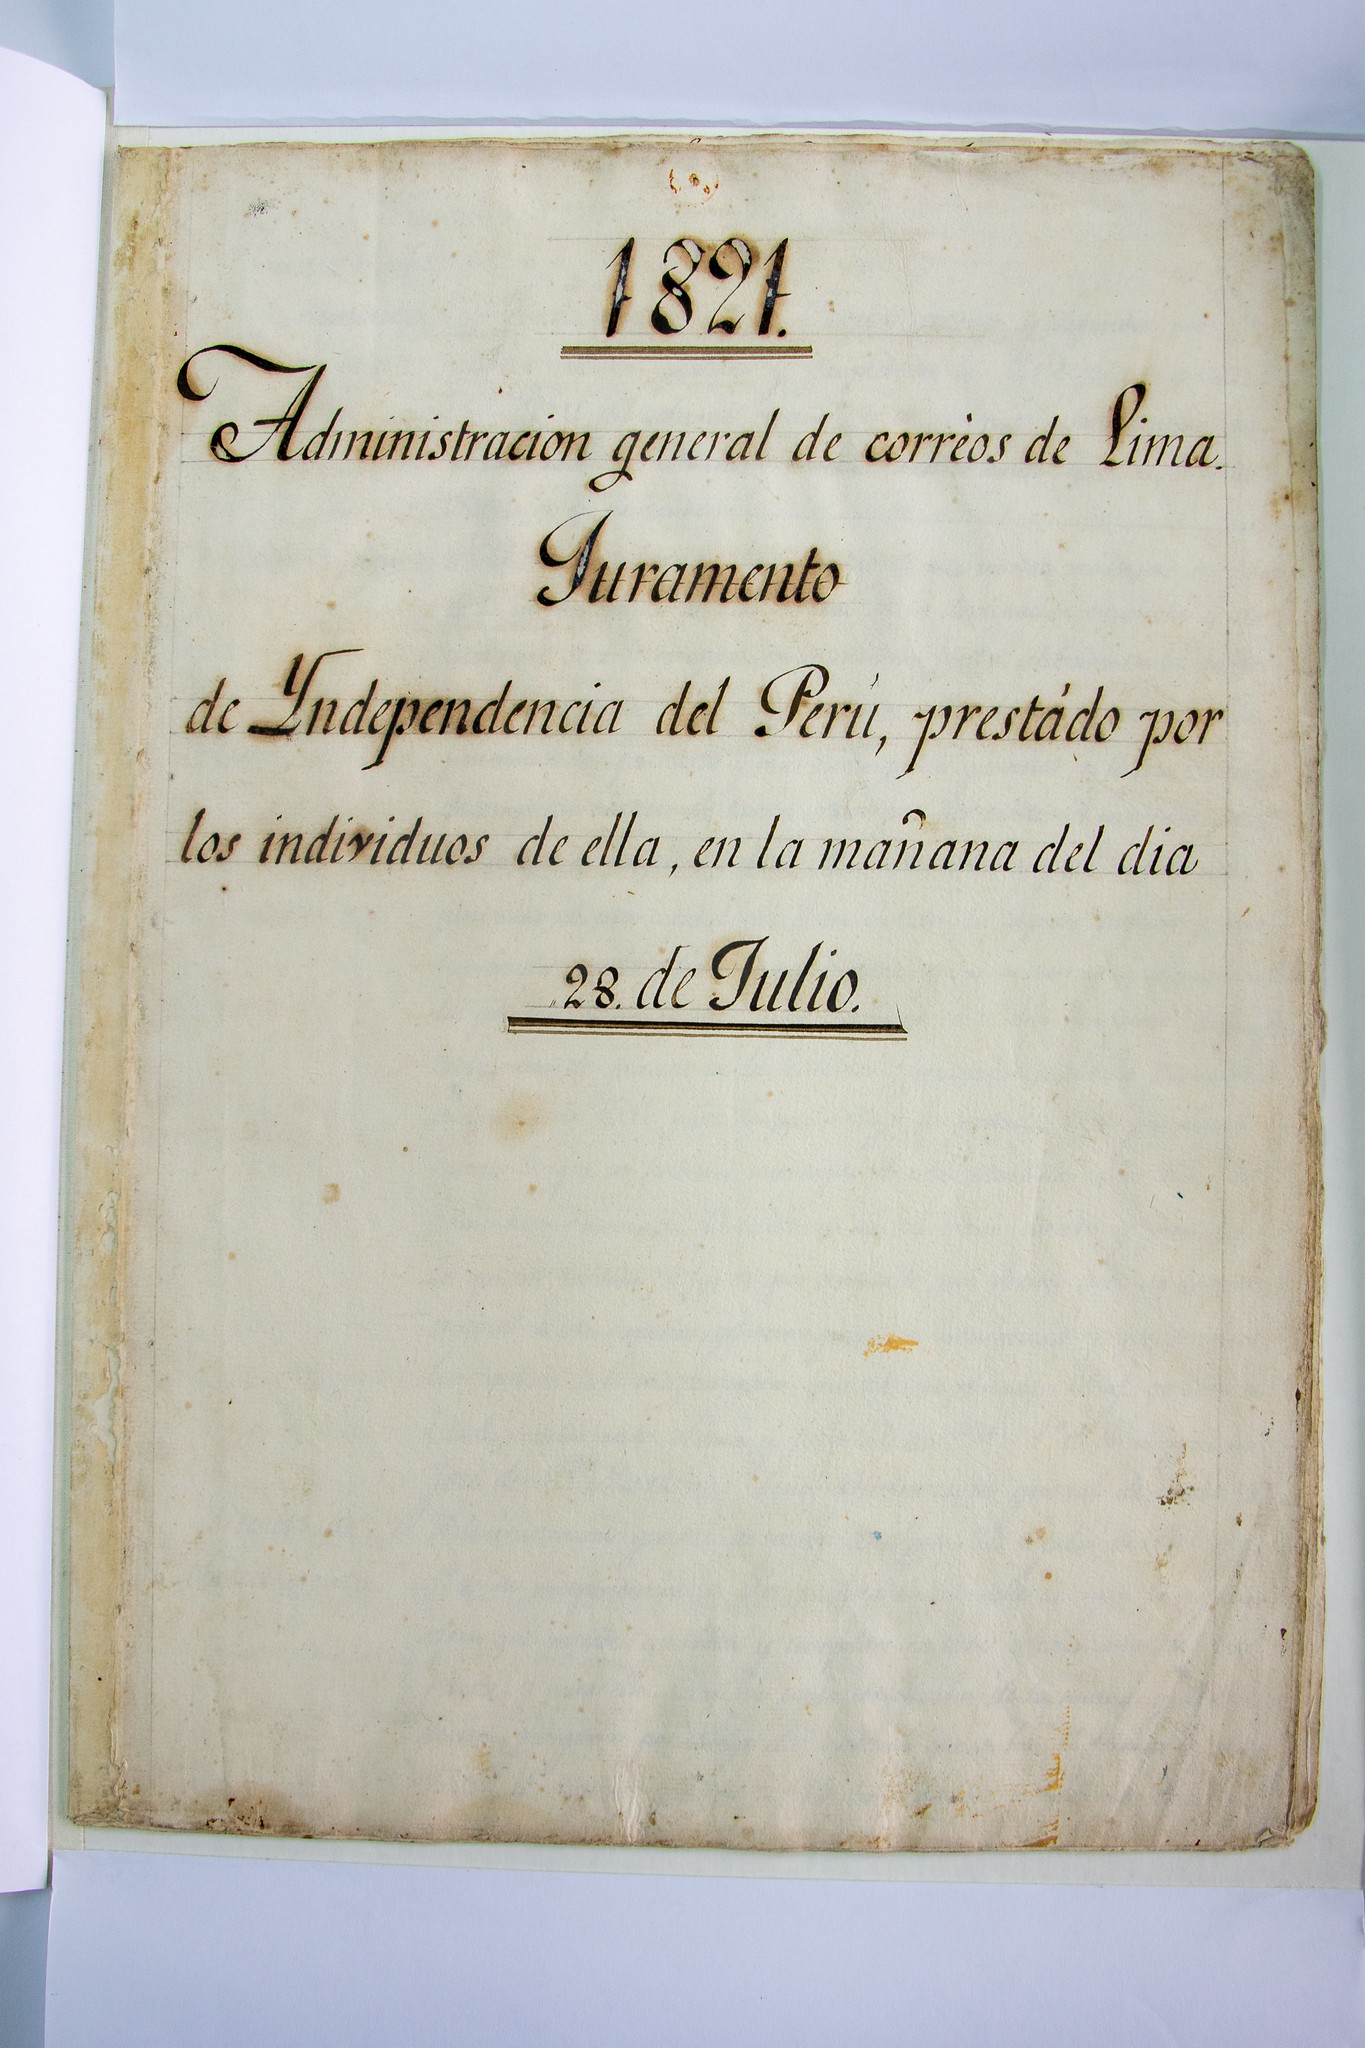 1821.
Administracion general de corrèos de Lima.
Juramento
de Yndependencia del Perú, prestádo por
los individuos de ella, en la mañana del dia
28. de Julio.